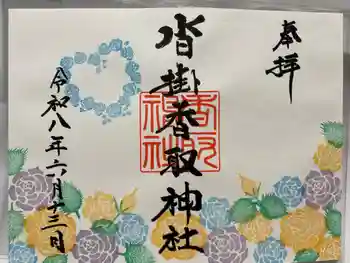 奉拝
沓掛香取神社
香取神社
令和八年六月十三日